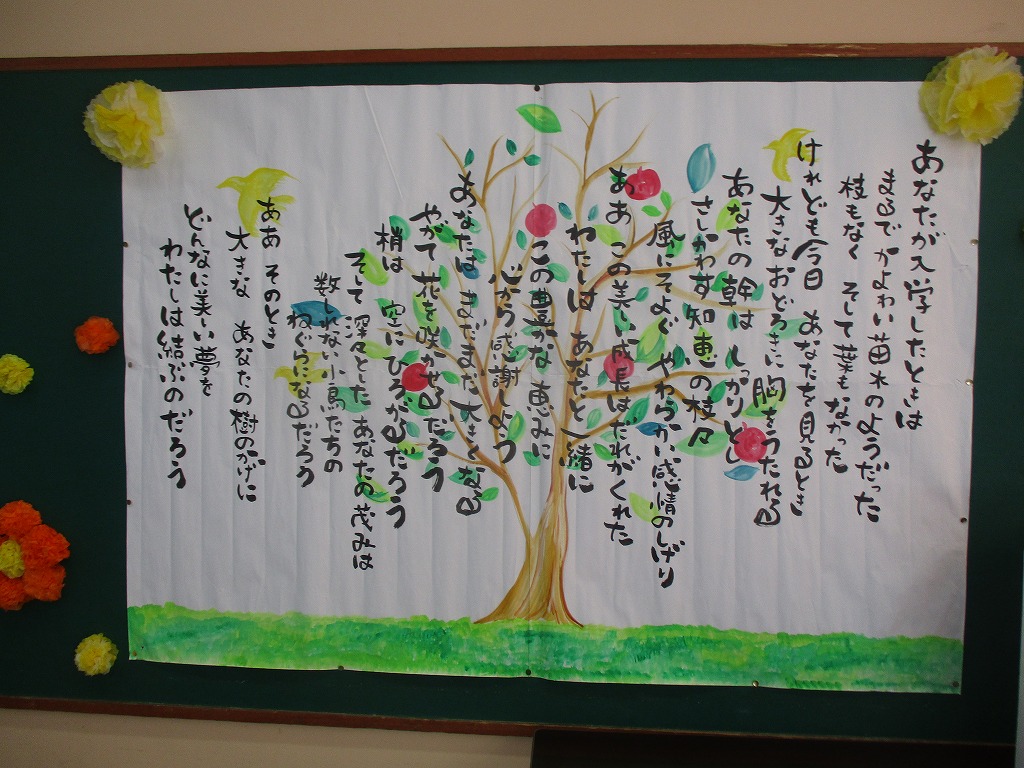 あなたが入学したときは
まるでかよわい苗木のようだった
枝もなく そして葉もなかった
けれども今日 あなたを見るとき
大きなおどろきに 胸をうたれる
あなたの幹は しっかりとし
さしかわす 知恵の枝々
風にそよぐ やわらかい感情のしげり
ああ この美しい成長はだれがくれた
わたしは あなたと一緒に
この豊かな恵みに
心から感謝しよう
あなたは まだまだ大きくなる
やがて花を咲かせるだろう
梢は 空にひろがるだろう
そして深々とした あなたの茂みは
数しれない小鳥たちの
ねぐらになるだろう
ああ そのとき
大きな あなたの樹のかげに
どんなに美しい夢を
わたしは結ぶのだろう